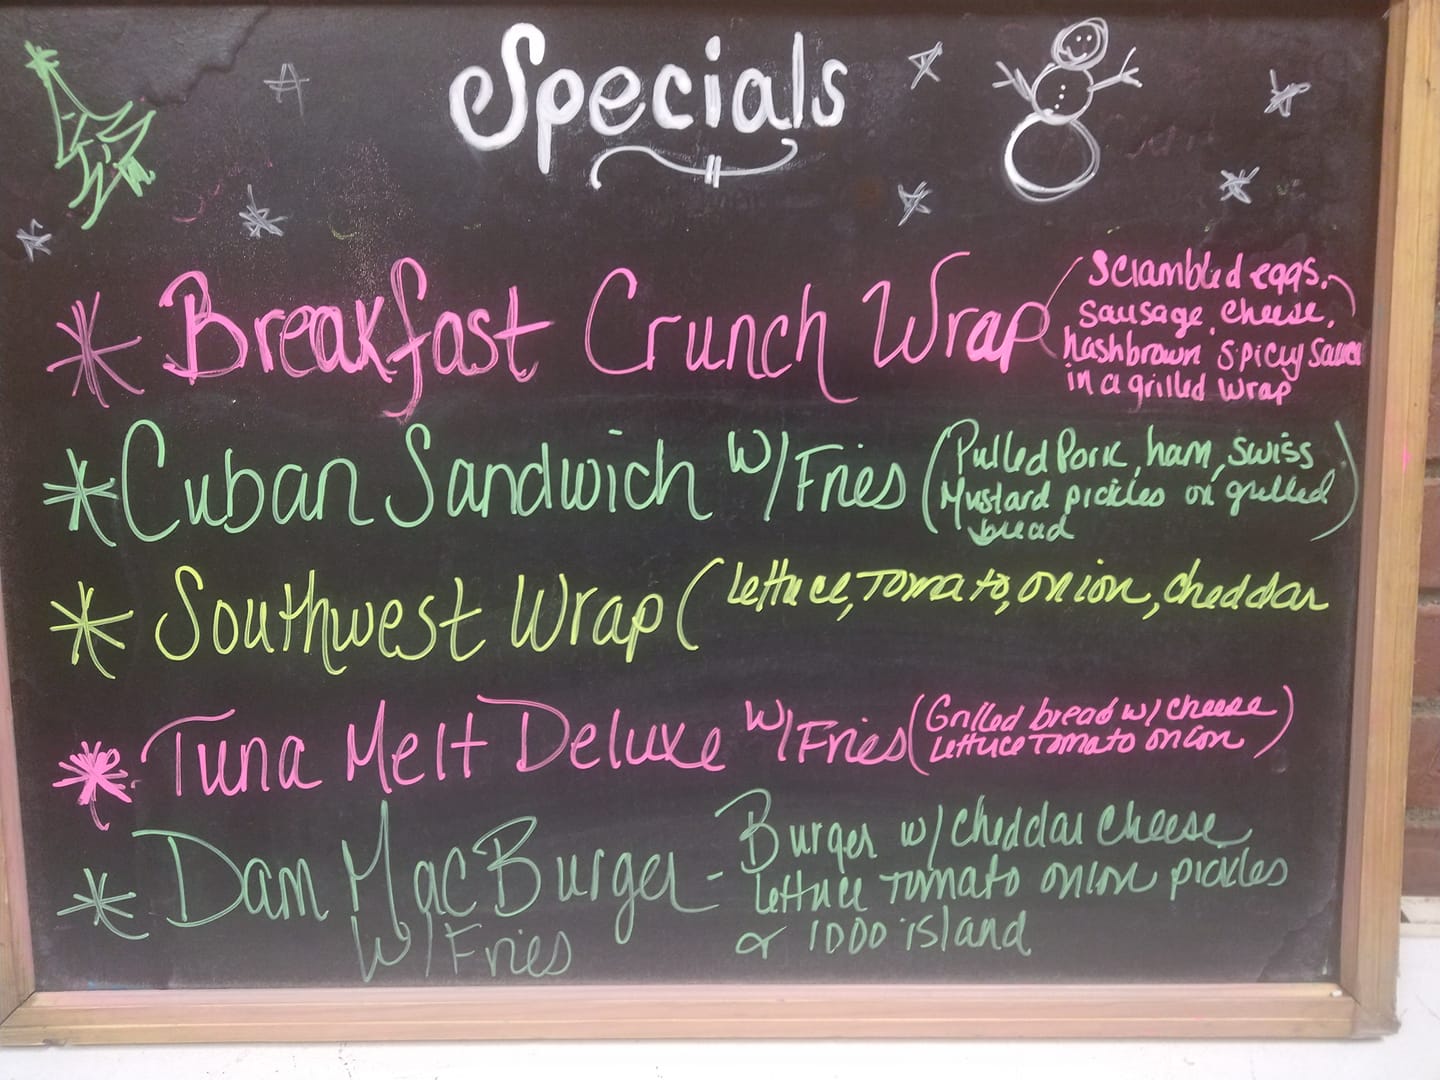 Specials
* Breakfast Crunch Wrap
Scrambled eggs,
sausage, cheese,
hashbrown spicy sauce
in a grilled wrap
* Cuban Sandwich w/ Fries (Pulled Pork, ham, swiss
Mustard pickles on grilled
bread)
* Southwest Wrap (lettuce, Tomato, onion, cheddar
* Tuna Melt Deluxe w/ Fries (Grilled bread w/ cheese
lettuce Tomato onion)
* Dam Mac Burger - Burger w/ cheddar cheese
lettuce Tomato onion pickles
w/ Fries
or 1000 island